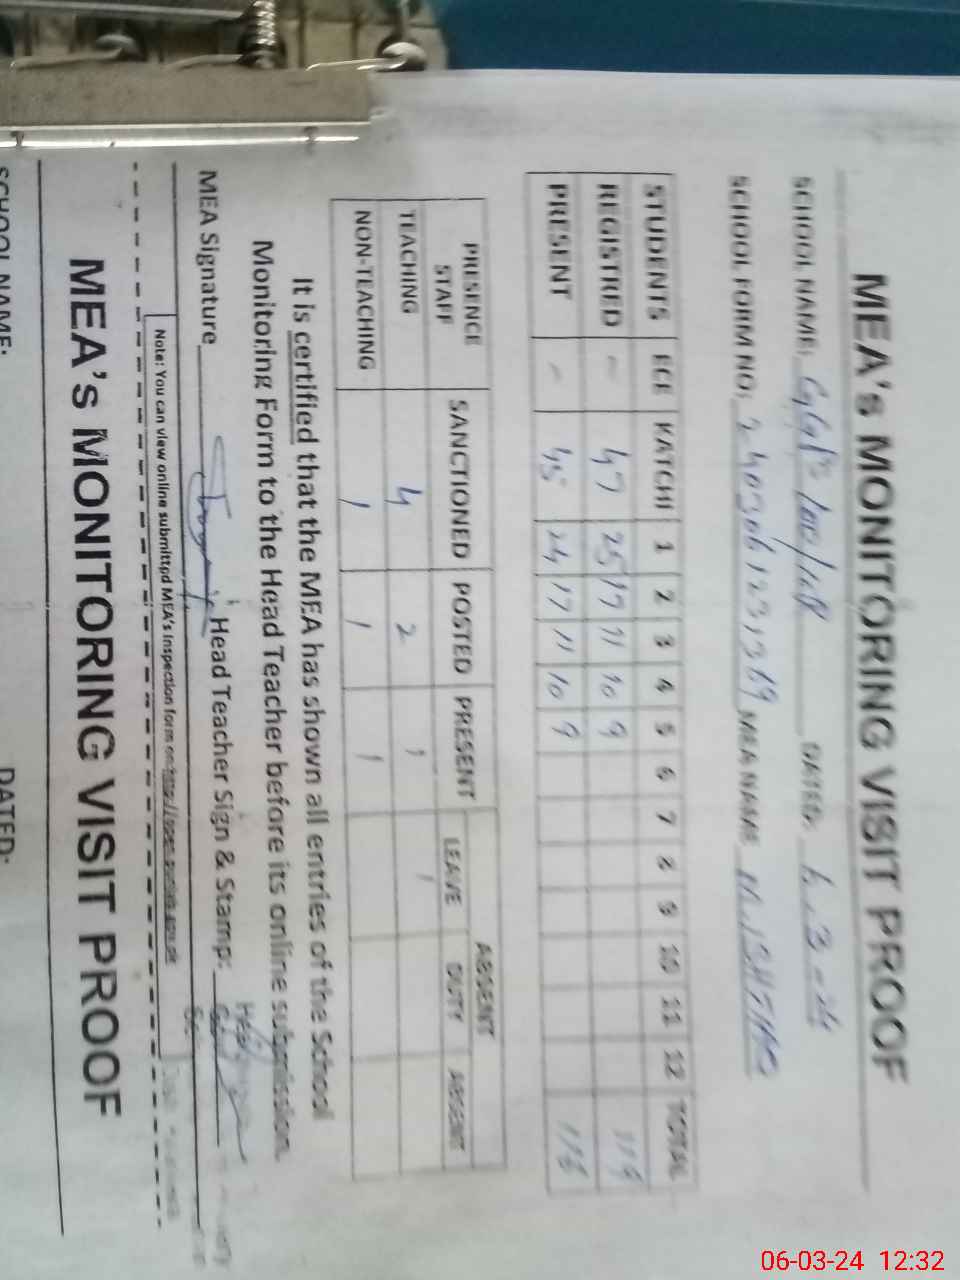 MEA's MONITORING VISIT PROOF
SCHOOL NAME: DATED: 6.3-24
SCHOOL FORM NO: MEA NAME
STUDENTS ECE KATCHI 1 2 3 4 5 6 7 8 9 10 11 12 TOTAL
REGISTRED - 47 25 17 11 10 9 119
PRESENT - 45 24 17 11 10 9 116
PRESENCE STAFF SANCTIONED POSTED PRESENT ABSENT
LEAVE DUTY ABSENT
TEACHING 4 2 1 1
NON-TEACHING 1 1 1
It is certified that the MEA has shown all entries of the School
Monitoring Form to the Head Teacher before its online submission.
MEA Signature Head Teacher Sign & Stamp:
Note: You can view online submittpd MEA's Inspection form on
MEA's MONITORING VISIT PROOF
SCHOOL NAME: DATED:
06-03-24 12:32